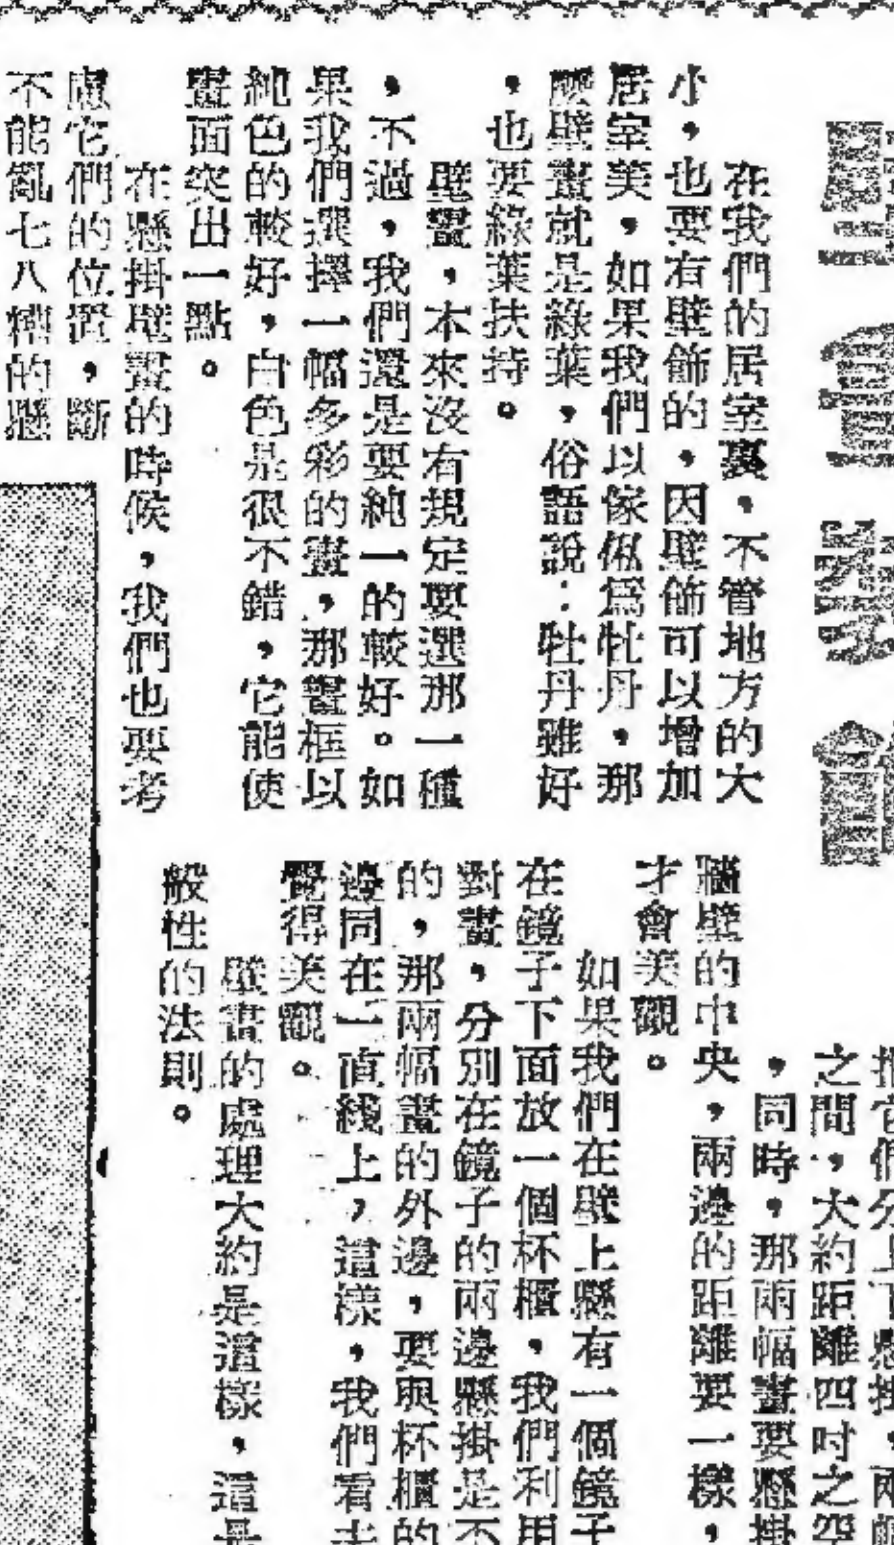 在我們的居室裏,不管地方的大
小,也要有壁飾的,因壁飾可以增加
居室美,如果我們以傢俬爲牡丹,那
麼壁畫就是綠葉,俗語說:牡丹雖好
,也要綠葉扶持。
壁畫,本來沒有規定要選那一種
,不過,我們還是要純一的較好。如
果我們選擇一幅多彩的畫,那畫框以
純色的較好,白色是很不錯,它能使
畫面突出一點。
在懸掛壁畫的時候,我們也要考
慮它們的位置,斷
不能亂七八糟的懸
它們分上下懸掛,兩幅
之間,大約距離四吋之空
,同時,那兩幅畫要懸掛
牆壁的中央,兩邊的距離要一樣,
才會美觀。
如果我們在壁上懸有一個鏡子
在鏡子下面放一個杯櫃,我們利用
對畫,分別在鏡子的兩邊懸掛是不
的,那兩幅畫的外邊,要與杯櫃的
邊同在一直綫上,這樣,我們看去
覺得美觀。
壁畫的處理大約是這樣,這是
般性的法則。